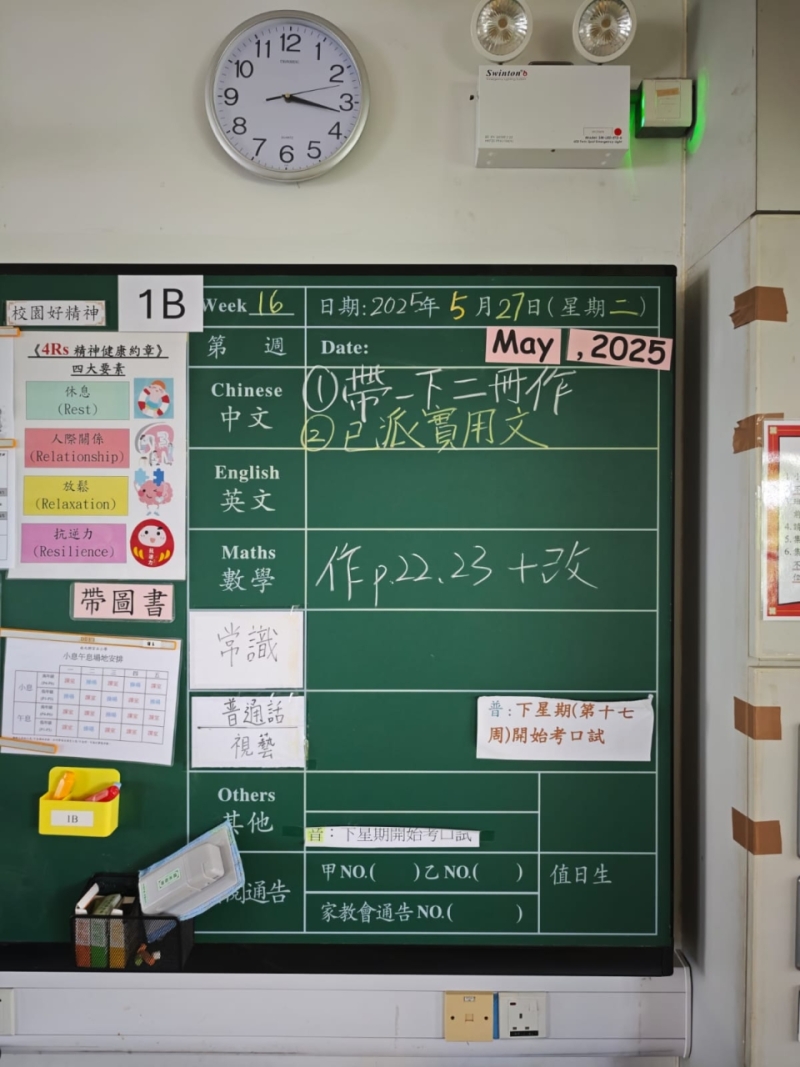 12
1
2
3
4
5
6
7
8
9
10
11
Swinton's
校園好精神
1B
《4Rs 精神健康約章》
四大要素
休息
(Rest)
人際關係
(Relationship)
放鬆
(Relaxation)
抗逆力
(Resilience)
帶圖書
小息午息場地安排
小息
午息
1B
Week 16
日期:2025年 5 月 27日(星期二)
第 週
Date:
May , 2025
Chinese
中文
①帶一下二冊作
②已派實用文
English
英文
Maths
數學
作p.22.23 +改
常識
普通話
視藝
普:下星期(第十七
周)開始考口試
Others
其他
音:下星期開始考口試
通告
甲NO.( )乙NO.( )
家教會通告NO.( )
值日生